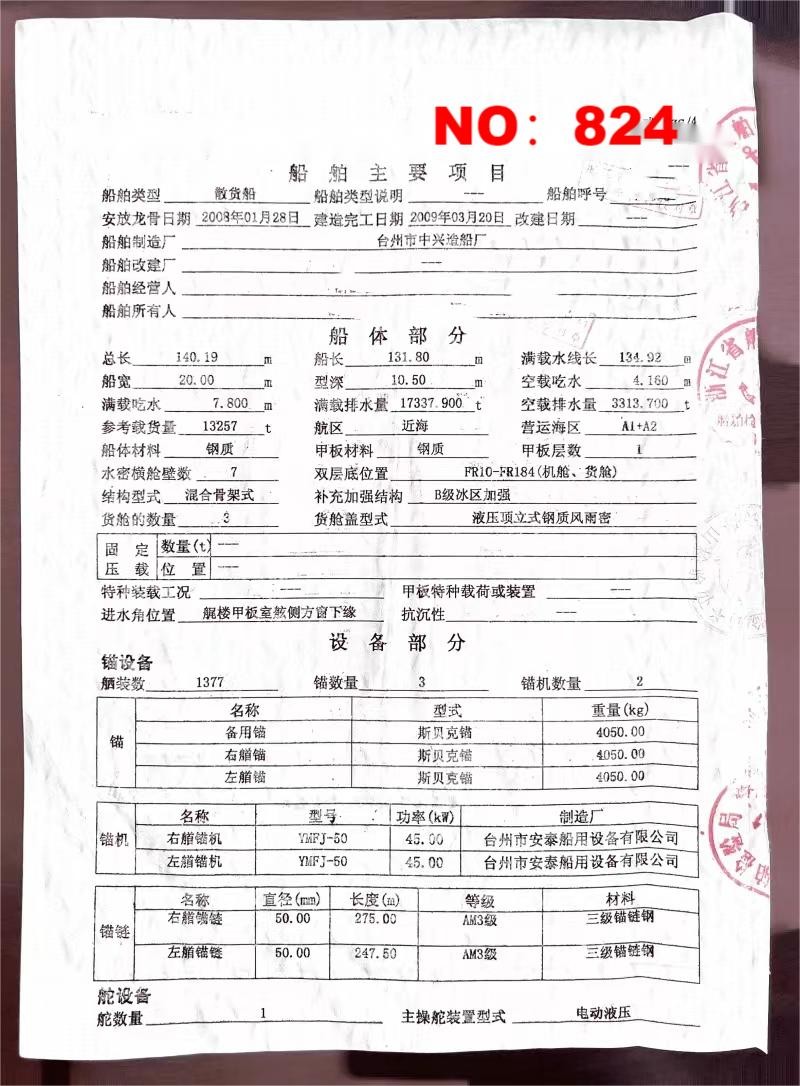 NO：824
船舶主要项目
船舶类型 散货船 船舶类型说明 --- 船舶呼号
安放龙骨日期 2008年01月28日 建造完工日期 2009年03月20日 改建日期 ---
船舶制造厂 台州市中兴造船厂
船舶改建厂 ---
船舶经营人
船舶所有人
船体部分
总长 140.19 m 船长 131.80 m 满载水线长 134.92 m
船宽 20.00 m 型深 10.50 m 空载吃水 4.160 m
满载吃水 7.800 m 满载排水量 17337.900 t 空载排水量 3313.700 t
参考载货量 13257 t 航区 近海 营运海区 A1+A2
船体材料 钢质 甲板材料 钢质 甲板层数 1
水密横舱壁数 7 双层底位置 FR10-FR184(机舱、货舱)
结构型式 混合骨架式 补充加强结构 B级冰区加强
货舱的数量 3 货舱盖型式 液压顶立式钢质风雨密
固定压载 数量(t) ---
位置 ---
特种装载工况 --- 甲板特种载荷或装置 ---
进水角位置 艉楼甲板室煞侧方窗下缘 抗沉性 ---
设备部分
锚设备
舾装数 1377 锚数量 3 锚机数量 2
锚 名称 型式 重量(kg)
备用锚 斯贝克锚 4050.00
右艏锚 斯贝克锚 4050.00
左艏锚 斯贝克锚 4050.00
锚机 名称 型号 功率(kW) 制造厂
右艏锚机 YMFJ-50 45.00 台州市安泰船用设备有限公司
左艏锚机 YMFJ-50 45.00 台州市安泰船用设备有限公司
锚链 名称 直径(mm) 长度(m) 等级 材料
右艏锚链 50.00 275.00 AM3级 三级锚链钢
左艏锚链 50.00 247.50 AM3级 三级锚链钢
舵设备
舵数量 1 主操舵装置型式 电动液压
浙江省船